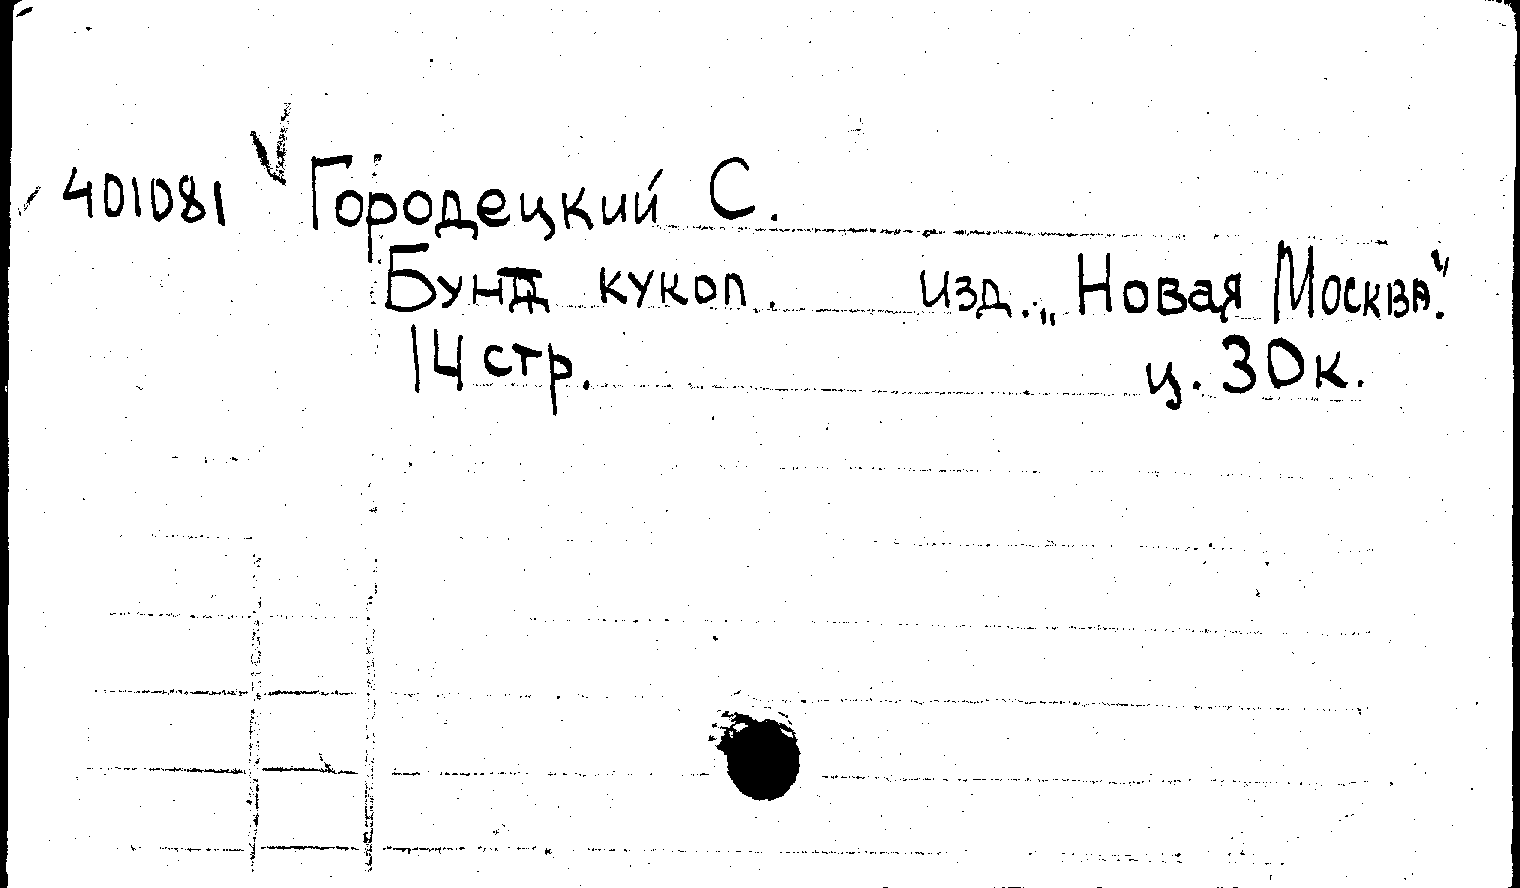 401081 Городецкий С.
Бунт кукол. изд. „Новая Москва".
14 стр. ц. 30 к.